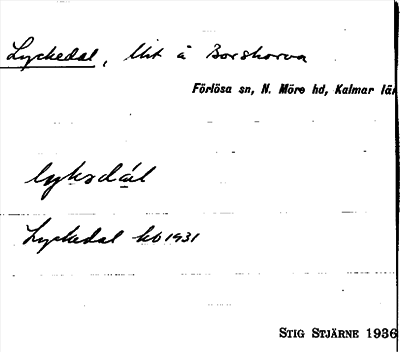 Lyckedal, lht å Borshorva
Förlösa sn, N. Möre hd, Kalmar län
lyksdal
Lyckedal kb 1931
STIG STJÄRNE 1936